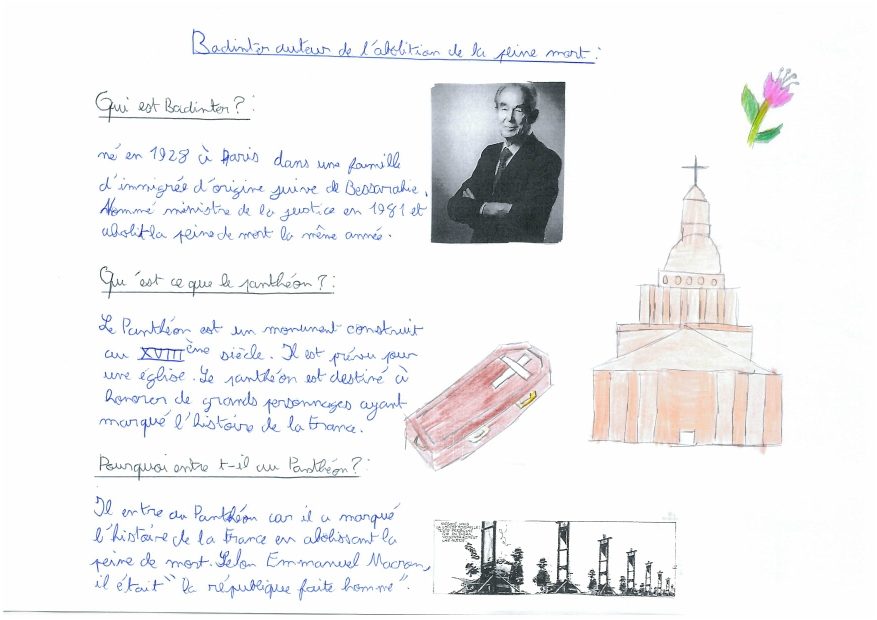 Badinter auteur de l'abolition de la peine mort :
Qui est Badinter ? :
né en 1928 à Paris dans une famille
d'immigrée d'origine juive de Bessarabie.
Nommé ministre de la justice en 1981 et
abolit la peine de mort la même année.
Qu'est ce que le panthéon ? :
Le Panthéon est un monument construit
au XVIIIème siècle. Il est prévu pour
une église. Le panthéon est destiné à
honorer de grands personnages ayant
marqué l'histoire de la France.
Pourquoi entre t-il au Panthéon ? :
Il entre au Panthéon car il a marqué
l'histoire de la France en abolissant la
peine de mort. Selon Emmanuel Macron,
il était "la république faite homme".